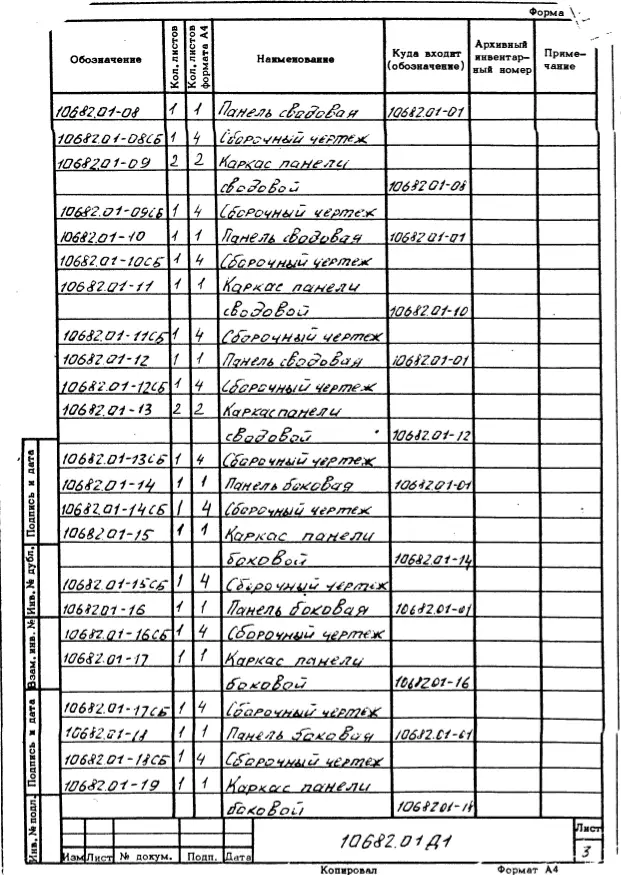 Форма
Обозначение Кол. листов Кол. листов формата А4 Наименование Куда входит (обозначение) Архивный инвентар- ный номер Приме- чание
10682.01-08 1 1 Панель сводовая 10682.01-01
10682.01-08СБ 1 4 Сборочный чертеж
10682.01-09 2 2 Каркас панели
сводовой 10682.01-08
10682.01-09СБ 1 4 Сборочный чертеж
10682.01-10 1 1 Панель сводовая 10682.01-01
10682.01-10СБ 1 4 Сборочный чертеж
10682.01-11 1 1 Каркас панели
сводовой 10682.01-10
10682.01-11СБ 1 4 Сборочный чертеж
10682.01-12 1 1 Панель сводовая 10682.01-01
10682.01-12СБ 1 4 Сборочный чертеж
10682.01-13 2 2 Каркас панели
сводовой 10682.01-12
10682.01-13СБ 1 4 Сборочный чертеж
10682.01-14 1 1 Панель боковая 10682.01-01
10682.01-14СБ 1 4 Сборочный чертеж
10682.01-15 1 1 Каркас панели
боковой 10682.01-14
10682.01-15СБ 1 4 Сборочный чертеж
10682.01-16 1 1 Панель боковая 10682.01-01
10682.01-16СБ 1 4 Сборочный чертеж
10682.01-17 1 1 Каркас панели
боковой 10682.01-16
10682.01-17СБ 1 4 Сборочный чертеж
10682.01-18 1 1 Панель боковая 10682.01-01
10682.01-18СБ 1 4 Сборочный чертеж
10682.01-19 1 1 Каркас панели
боковой 10682.01-18
Подпись и дата
Инв. № дубл.
Взам. инв. №
Подпись и дата
Инв. № подл.
Изм Лист № докум. Подп. Дата
10682.01Д1
Лист
3
Копировал Формат А4